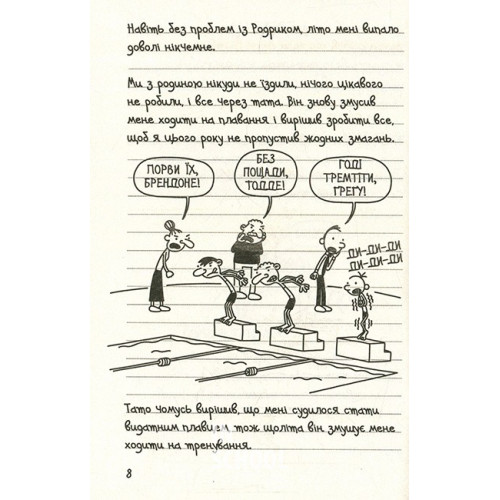 Навіть без проблем із Родриком, літо мені випало
доволі нікчемне.
Ми з родиною нікуди не їздили, нічого цікавого
не робили, і все через тата. Він знову змусив
мене ходити на плавання і вирішив зробити все,
щоб я цього року не пропустив жодних змагань.
ПОРВИ ЇХ,
БРЕНДОНЕ!
БЕЗ
ПОЩАДИ,
ТОДДЕ!
ГОДІ
ТРЕМТІТИ,
ҐРЕҐУ!
ДИ-ДИ-ДИ
ДИ-ДИ-ДИ
Тато чомусь вирішив, що мені судилося стати
видатним плавцем тож щоліта він змушує мене
ходити на тренування.
8